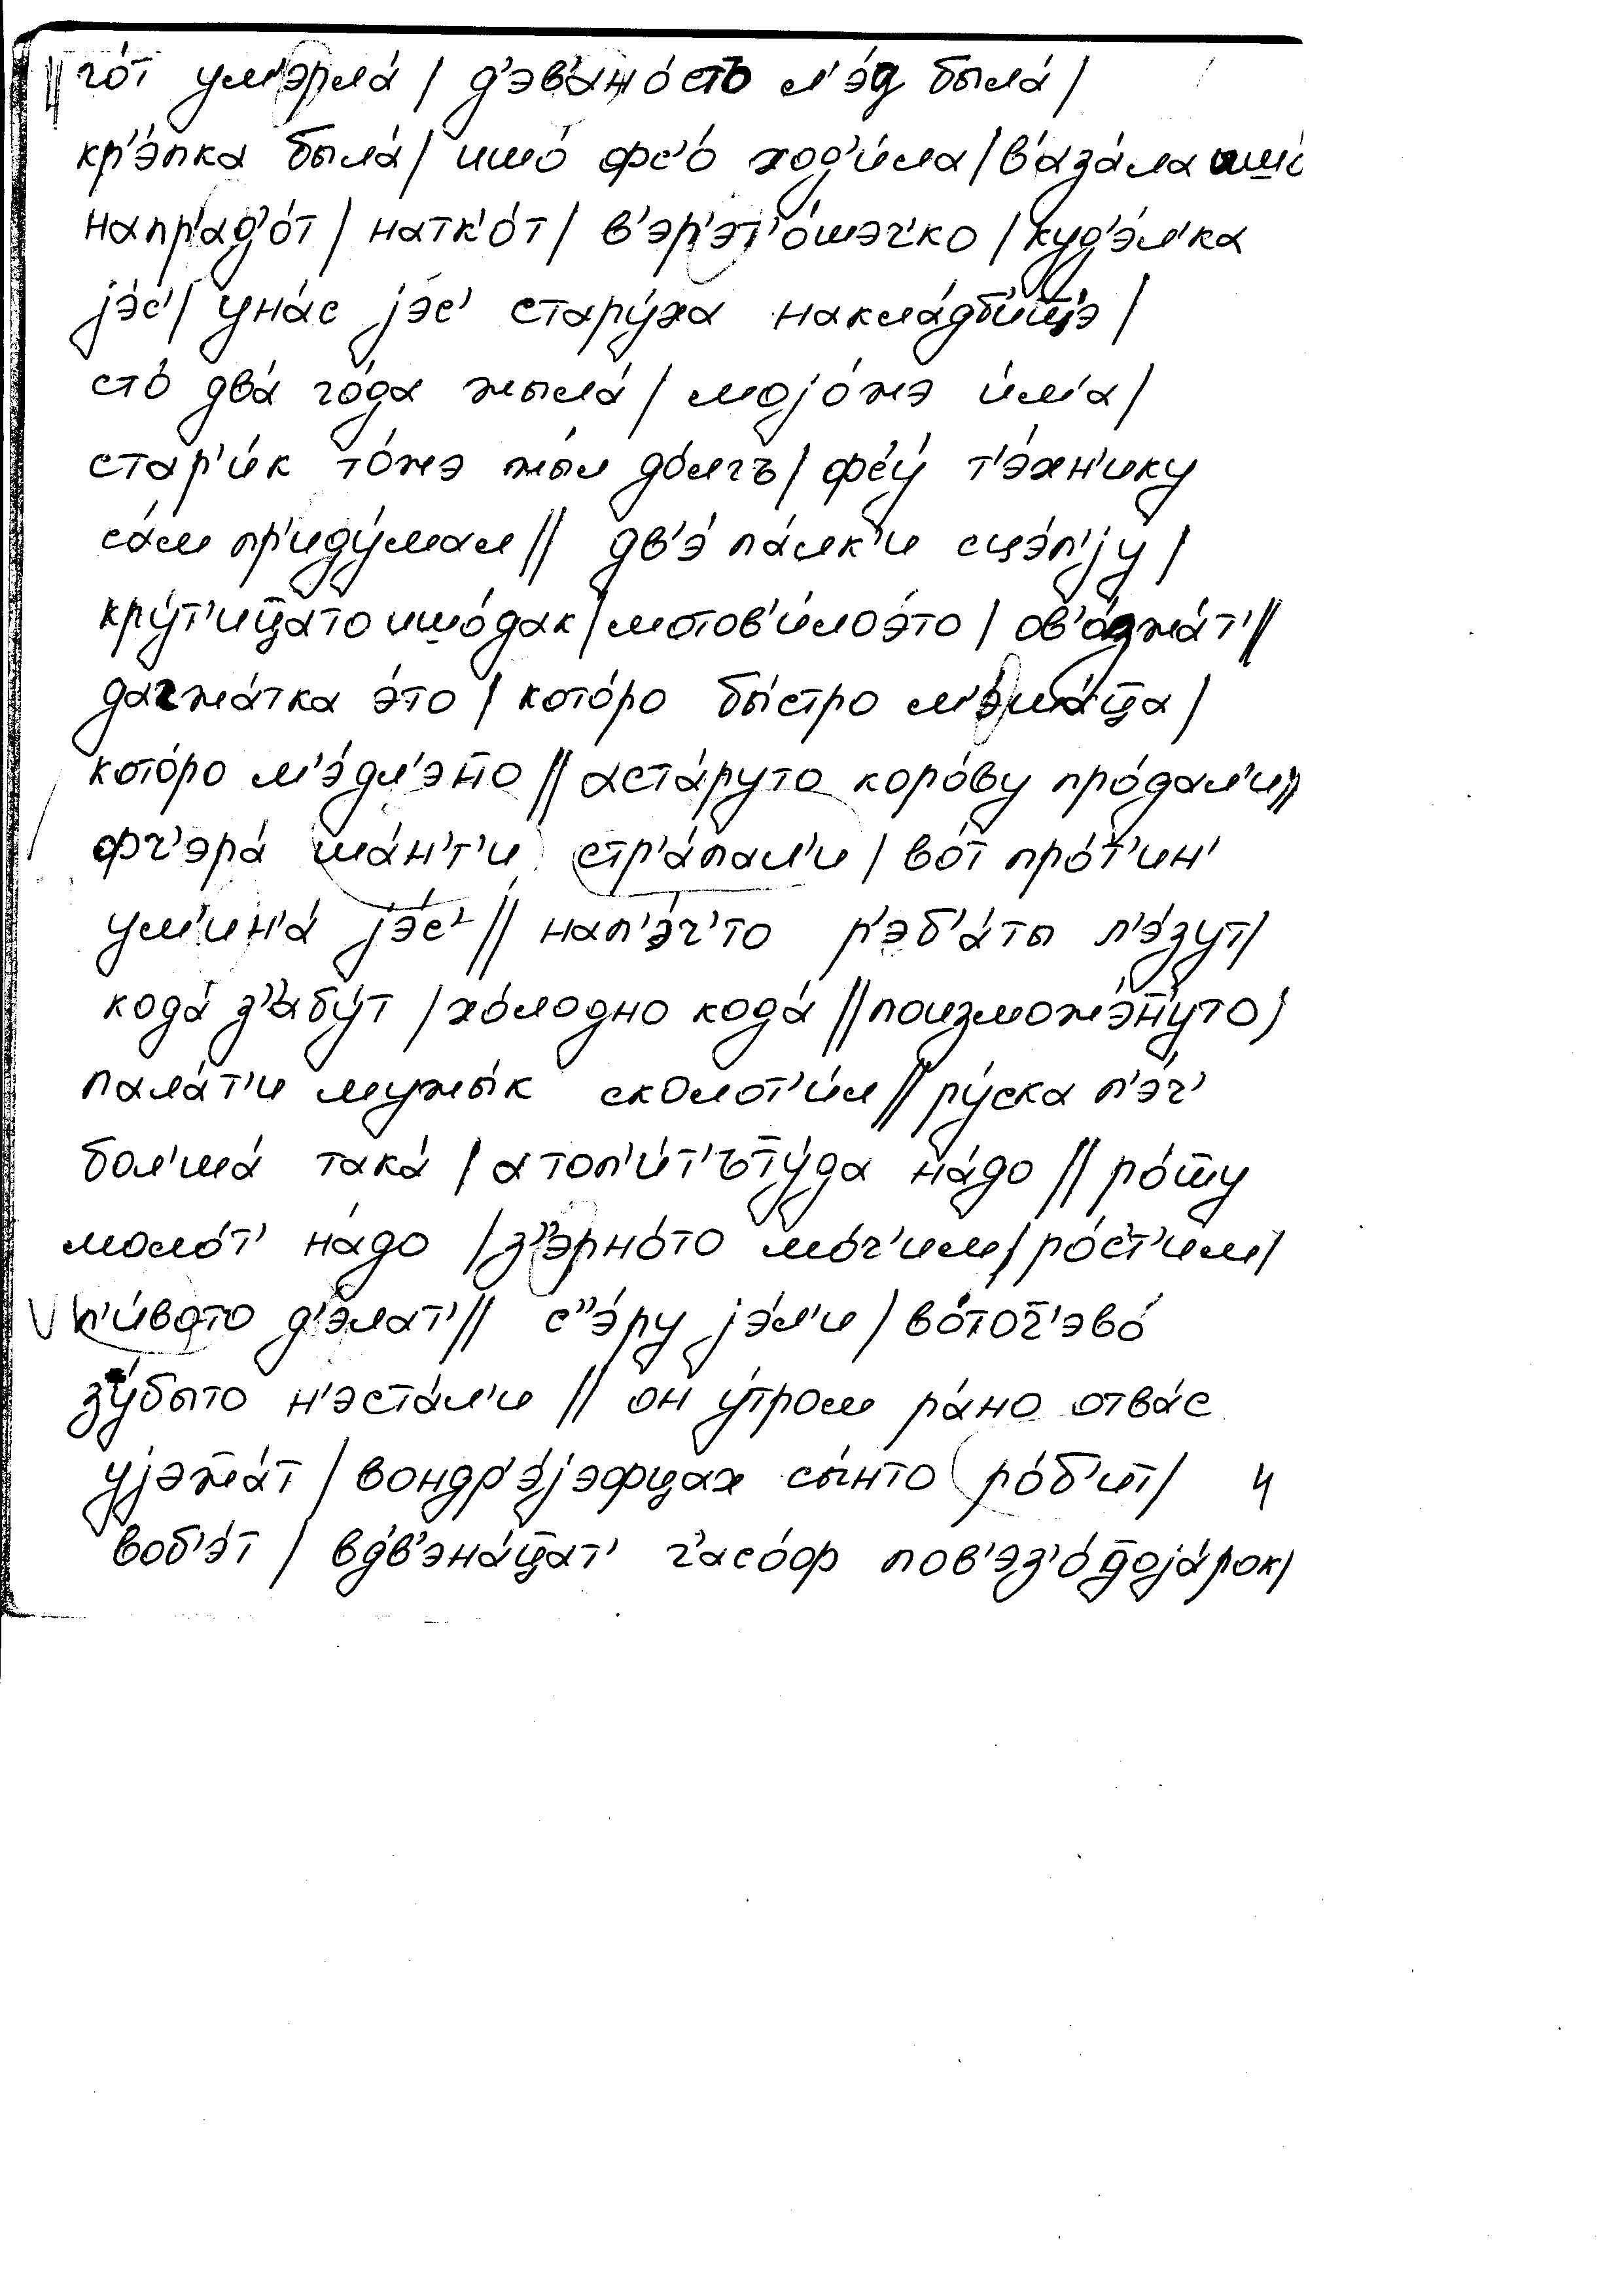 ‖ го́т ум'эрла́ / д'эв'ано́стъ л'э́д была́ /
кр'э́пка была́ / ишо́ фс'о́ ход'и́ла / в'аза́ла
напр'ад'о́т / натк'о́т / в'эр'эт'о́шэч'ко / куд'э́л'ка
jэ́с' / уна́с jэ́с' стару́ха накла́дби́щ'э /
сто́ два́ го́да жыла́ / моjо́жэ и́м'а /
стар'и́к то́жэ жы́л до́лгъ / фс'у́ т'э́хн'ику
са́м пр'иду́мал // дв'э́ па́лк'и сцэ́п'jу /
кру́т'ица̄то ишо́дак / мотов'и́лоэ́то /
дагжа́тка э́то / кото́ро бы́стро
кото́ро м'э́дл'эн̄о // аста́руто коро́ву про́дал'и //
фч'эра́ ша́н'г'и стр'а́пал'и / во́т про́т'ин'
ум'ин'а́ jэ́с' // нап'э́ч'то р'эб'а́ты л'э́зут /
кода́ з''абу́т / хо́лодно кода́ // поизможэ́н̄уто /
пала́т'и мужы́к сколот'и́л // ру́ска п'э́ч'
бол'ша́ така́ / а топ'и́т'ът̄у́да на́до // ро́ш̄у
моло́т' на́до / з''эрно́то мо́ч'им / ро́ст'им /
п'и́вото д'э́лат' // с''э́ру jэ́л'и / во́точ̄'эво́
зу́быто н'эста́л'и // он у́тром ра́но отва́с
уjэж̄а́т / вондр'э́jэфцах сы́нто ро́б'ит / ч
воб'э́т / вдв'эна́ц̄ат' ч'асо́ф пов'эз'о́д̄оjа́рок /